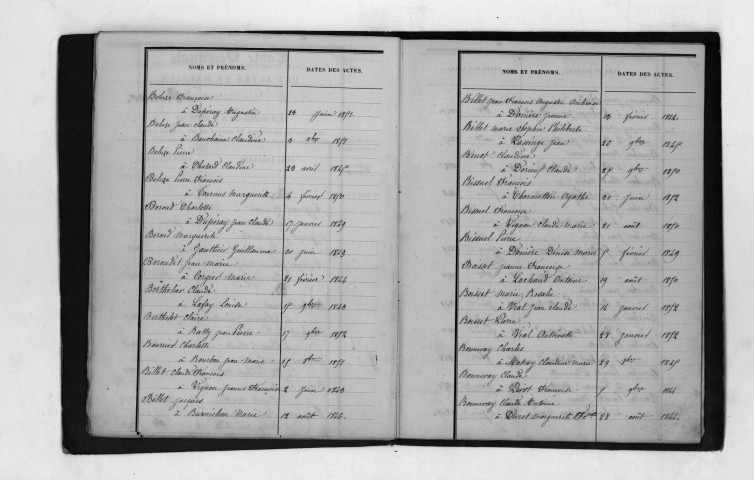 NOMS ET PRÉNOMS. DATES DES ACTES.
Boluze Francoise
à Dupéray Augustin 23 juin 1851.
Boluze jean claude
à Bauchaine Claudine 3 1851
Boluze Pierre
à Chetard Claudine 23 avril 1845
Boluze Pierre François
à Tournus Marguerite 4 février 1850
Beroud Charlotte
à Dupéray jean Claude 17 janvier 1849
Beroud Marguerite
à Gauthier Guillaume 20 juin 1843
Beroudet jean marie
à Corgier Marie 21 février 1844
Berthelier Claude
à Lafay Louise 15 9bre 1843
Berthelot Claire
à Batty jean Pierre 17 9bre 1852
Bourrier Charlotte
à Bourbon jean Marie 15 8bre 1851
Billet Claude François
à Vignon jeanne Françoise 2 juin 1843
Billet jacques
à Burnichon Marie 12 août 1846.
NOMS ET PRÉNOMS. DATES DES ACTES.
Billet jean Francois Augustin Ambroise
à Danière jeanne 13 février 1844.
Billet marie Sophie Philiberte
à Lassinge jean 26 9bre 1845
Binot Claudine
à Claude 25 9bre 1850
Bissuel François
à Charmetton Agathe 30 juin 1852
Bissuel Francoise
à Vignon Claude Marie 21 août 1850
Bissuel Pierre
à Danière Denise Marie 5 février 1849
Boisset jeanne Françoise
à Lachand Antoine 19 août 1850
Boisset Marie Rosalie
à Vial jean claude 14 janvier 1852
Boisset Pierre
à Vial Antoinette 28 janvier 1852
Bonnevay Charles
à Claudine marie 29 8bre 1845
Bonnevay Claude
à Perot Francoise 5 9bre 1844
Bonnevay Claude Antoine
à Duret marguerite 28 août 1844.